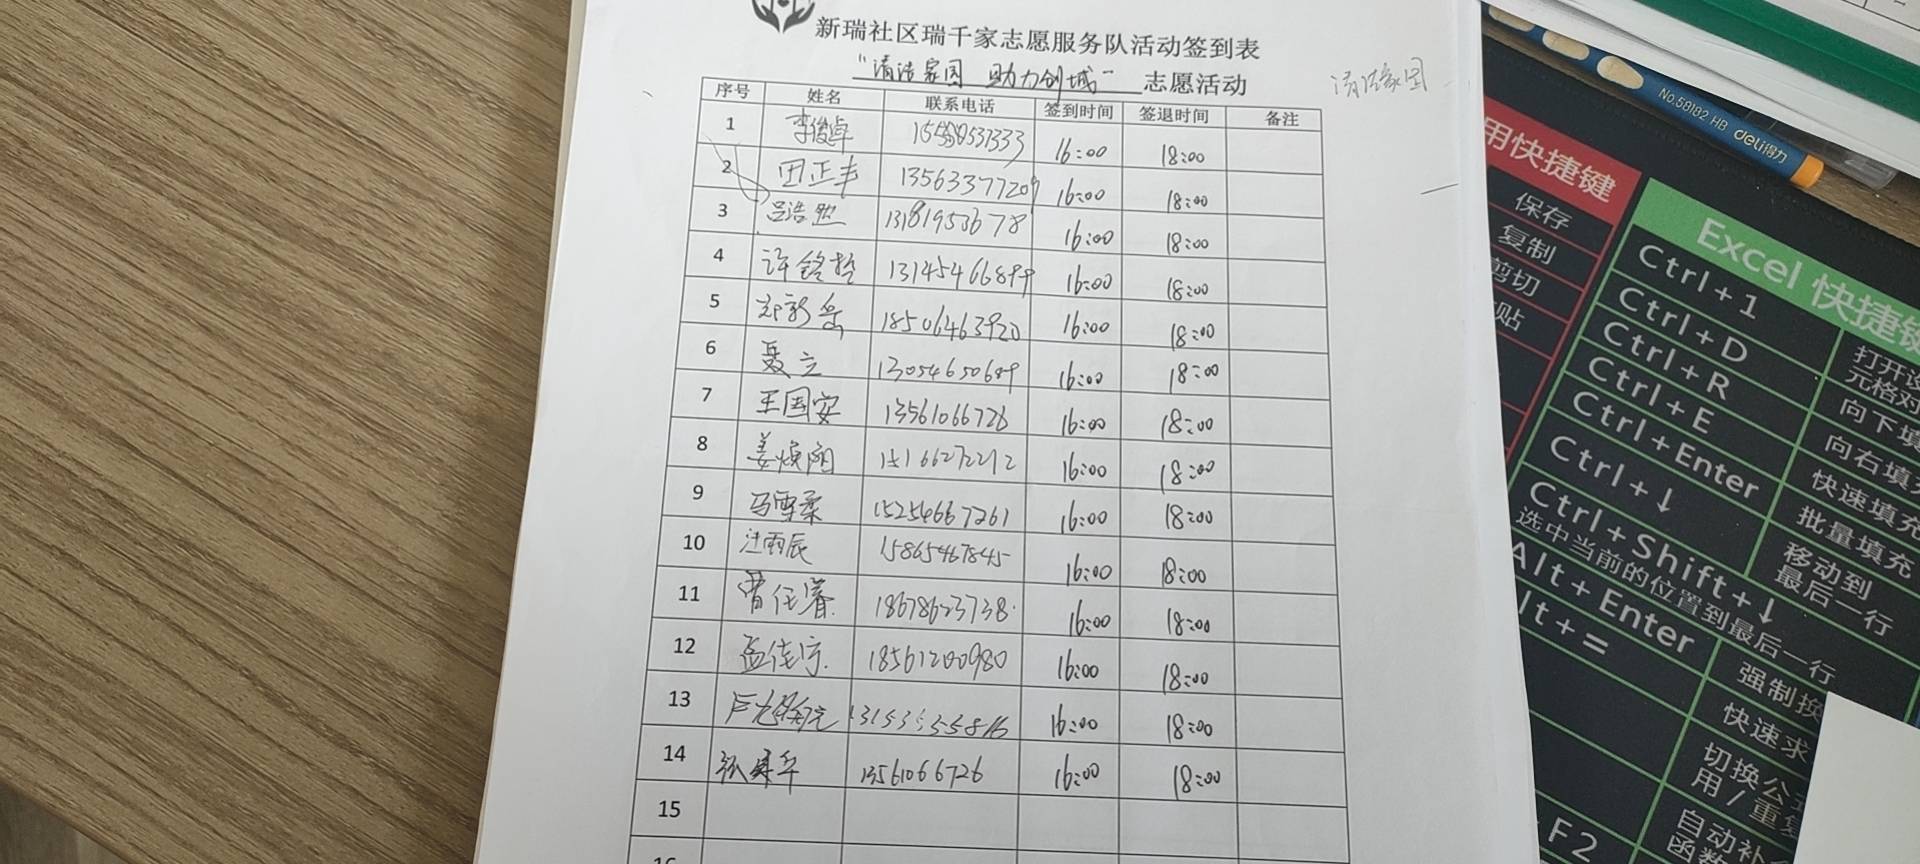 新瑞社区瑞千家志愿服务队活动签到表
"清洁家园 助力创城" 志愿活动
清洁家园
序号 姓名 联系电话 签到时间 签退时间 备注
1 李俊卓 15588537333 16:00 18:00
2 田正丰 13563377209 16:00 18:00
3 吕浩然 13181953678 16:00 18:00
4 许铭哲 13145466899 16:00 18:00
5 郑新岳 18506463920 16:00 18:00
6 聂立 13054650689 16:00 18:00
7 王国安 13561066726 16:00 18:00
8 姜焕阳 16:00 18:00
9 马雪柔 15254667261 16:00 18:00
10 汪雨辰 15865467845 16:00 18:00
11 曹任睿 18678623738 16:00 18:00
12 孟佳 18561200980 16:00 18:00
13 16:00 18:00
14 13561066726 16:00 18:00
15
16
No.58182 HB deli得力
用快捷键
保存
复制
剪切
贴
Excel 快捷键
Ctrl+1
Ctrl+D
向下填
Ctrl+R
向右填
Ctrl+E
快速填充
Ctrl+Enter
批量填充
Ctrl+↓
移动到
最后一行
Ctrl+Shift+↓
选中当前的位置到最后一行
Alt+Enter
强制换
lt+=
快速求
切换公
用/重复
F2
自动补
函数